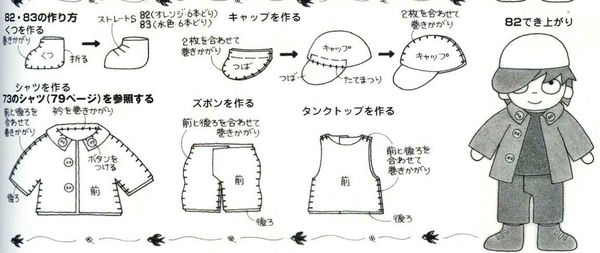 82・83の作り方
くつを作る
巻きかがり
くつ
折る
ストレートS
82(オレンジ・6本どり)
83(水色・6本どり)
キャップを作る
2枚を合わせて
巻きかがり
つば
キャップ
つば
たてまつり
2枚を合わせて
巻きかがり
キャップ
82でき上がり
シャツを作る
73のシャツ(79ページ)を参照する
前と後ろ
を合わせて
巻きかがり
衿を巻きかがり
ボタンを
つける
前
後ろ
ズボンを作る
前と後ろを合わせて
巻きかがり
前
後ろ
タンクトップを作る
前と後ろを
合わせて
巻きかがり
前
後ろ